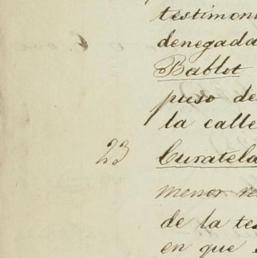 testimoni
denegada
Bablot
puso de
la calle
23 Curatela
menor
de la tes
en que